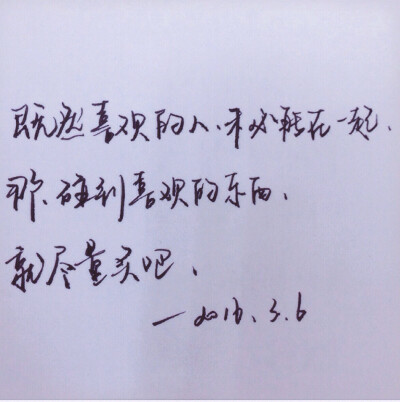 既然喜欢的人、不必能在一起、
那、碰到喜欢的东西、
就尽量买吧、
—2016.3.6